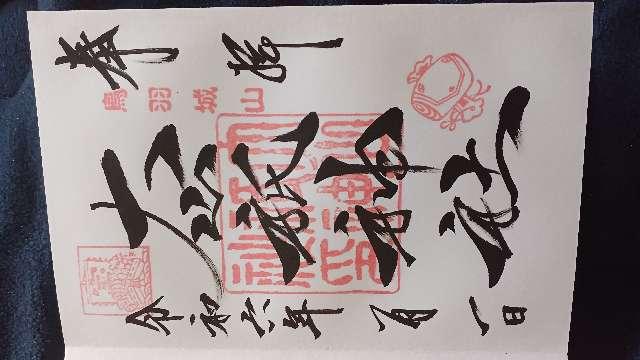 奉拝
鳥羽城山
大山祇神社
令和六年 月一日